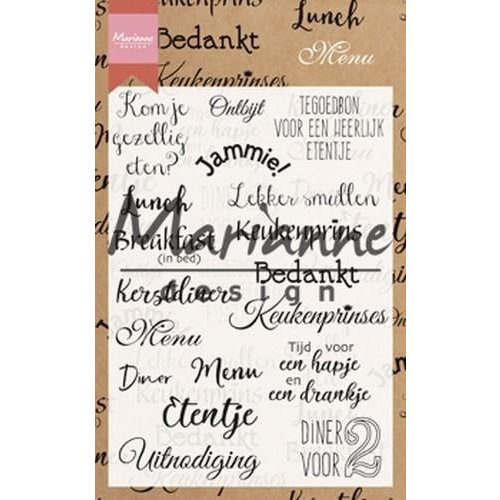 Marianne
design
Bedankt
Keukenprinses
Lunch
Menu
Kom je
gezellig
eten?
Ontbijt
TEGOEDBON
VOOR EEN HEERLIJK
ETENTJE
Jammie!
Lunch
Lekker smullen
Marianne
design
Breakfast
(in bed)
Keukenprins
Bedankt
Kerstdiner
Keukenprinses
Menu
Tijd voor
een hapje
en
een drankje
Diner
Menu
Etentje
DINER
VOOR 2
Uitnodiging